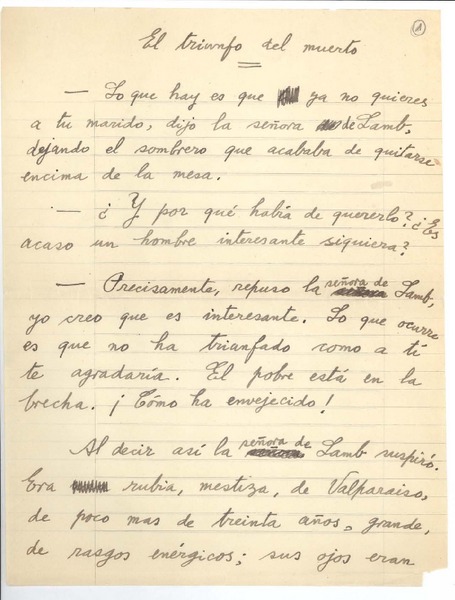 1
El triunfo del muerto
— Lo que hay es que ya no quieres
a tu marido, dijo la señora de Lamb,
dejando el sombrero que acababa de quitarse
encima de la mesa.
— ¿Y por qué había de quererlo? ¿Es
acaso un hombre interesante siquiera?
— Precisamente, repuso la señora de Lamb,
yo creo que es interesante. Lo que ocurre
es que no ha triunfado como a tí
te agradaría. El pobre está en la
brecha. ¡Cómo ha envejecido!
Al decir así la señora de Lamb suspiró.
Era rubia, mestiza, de Valparaiso,
de poco mas de treinta años, grande,
de rasgos enérgicos; sus ojos eran